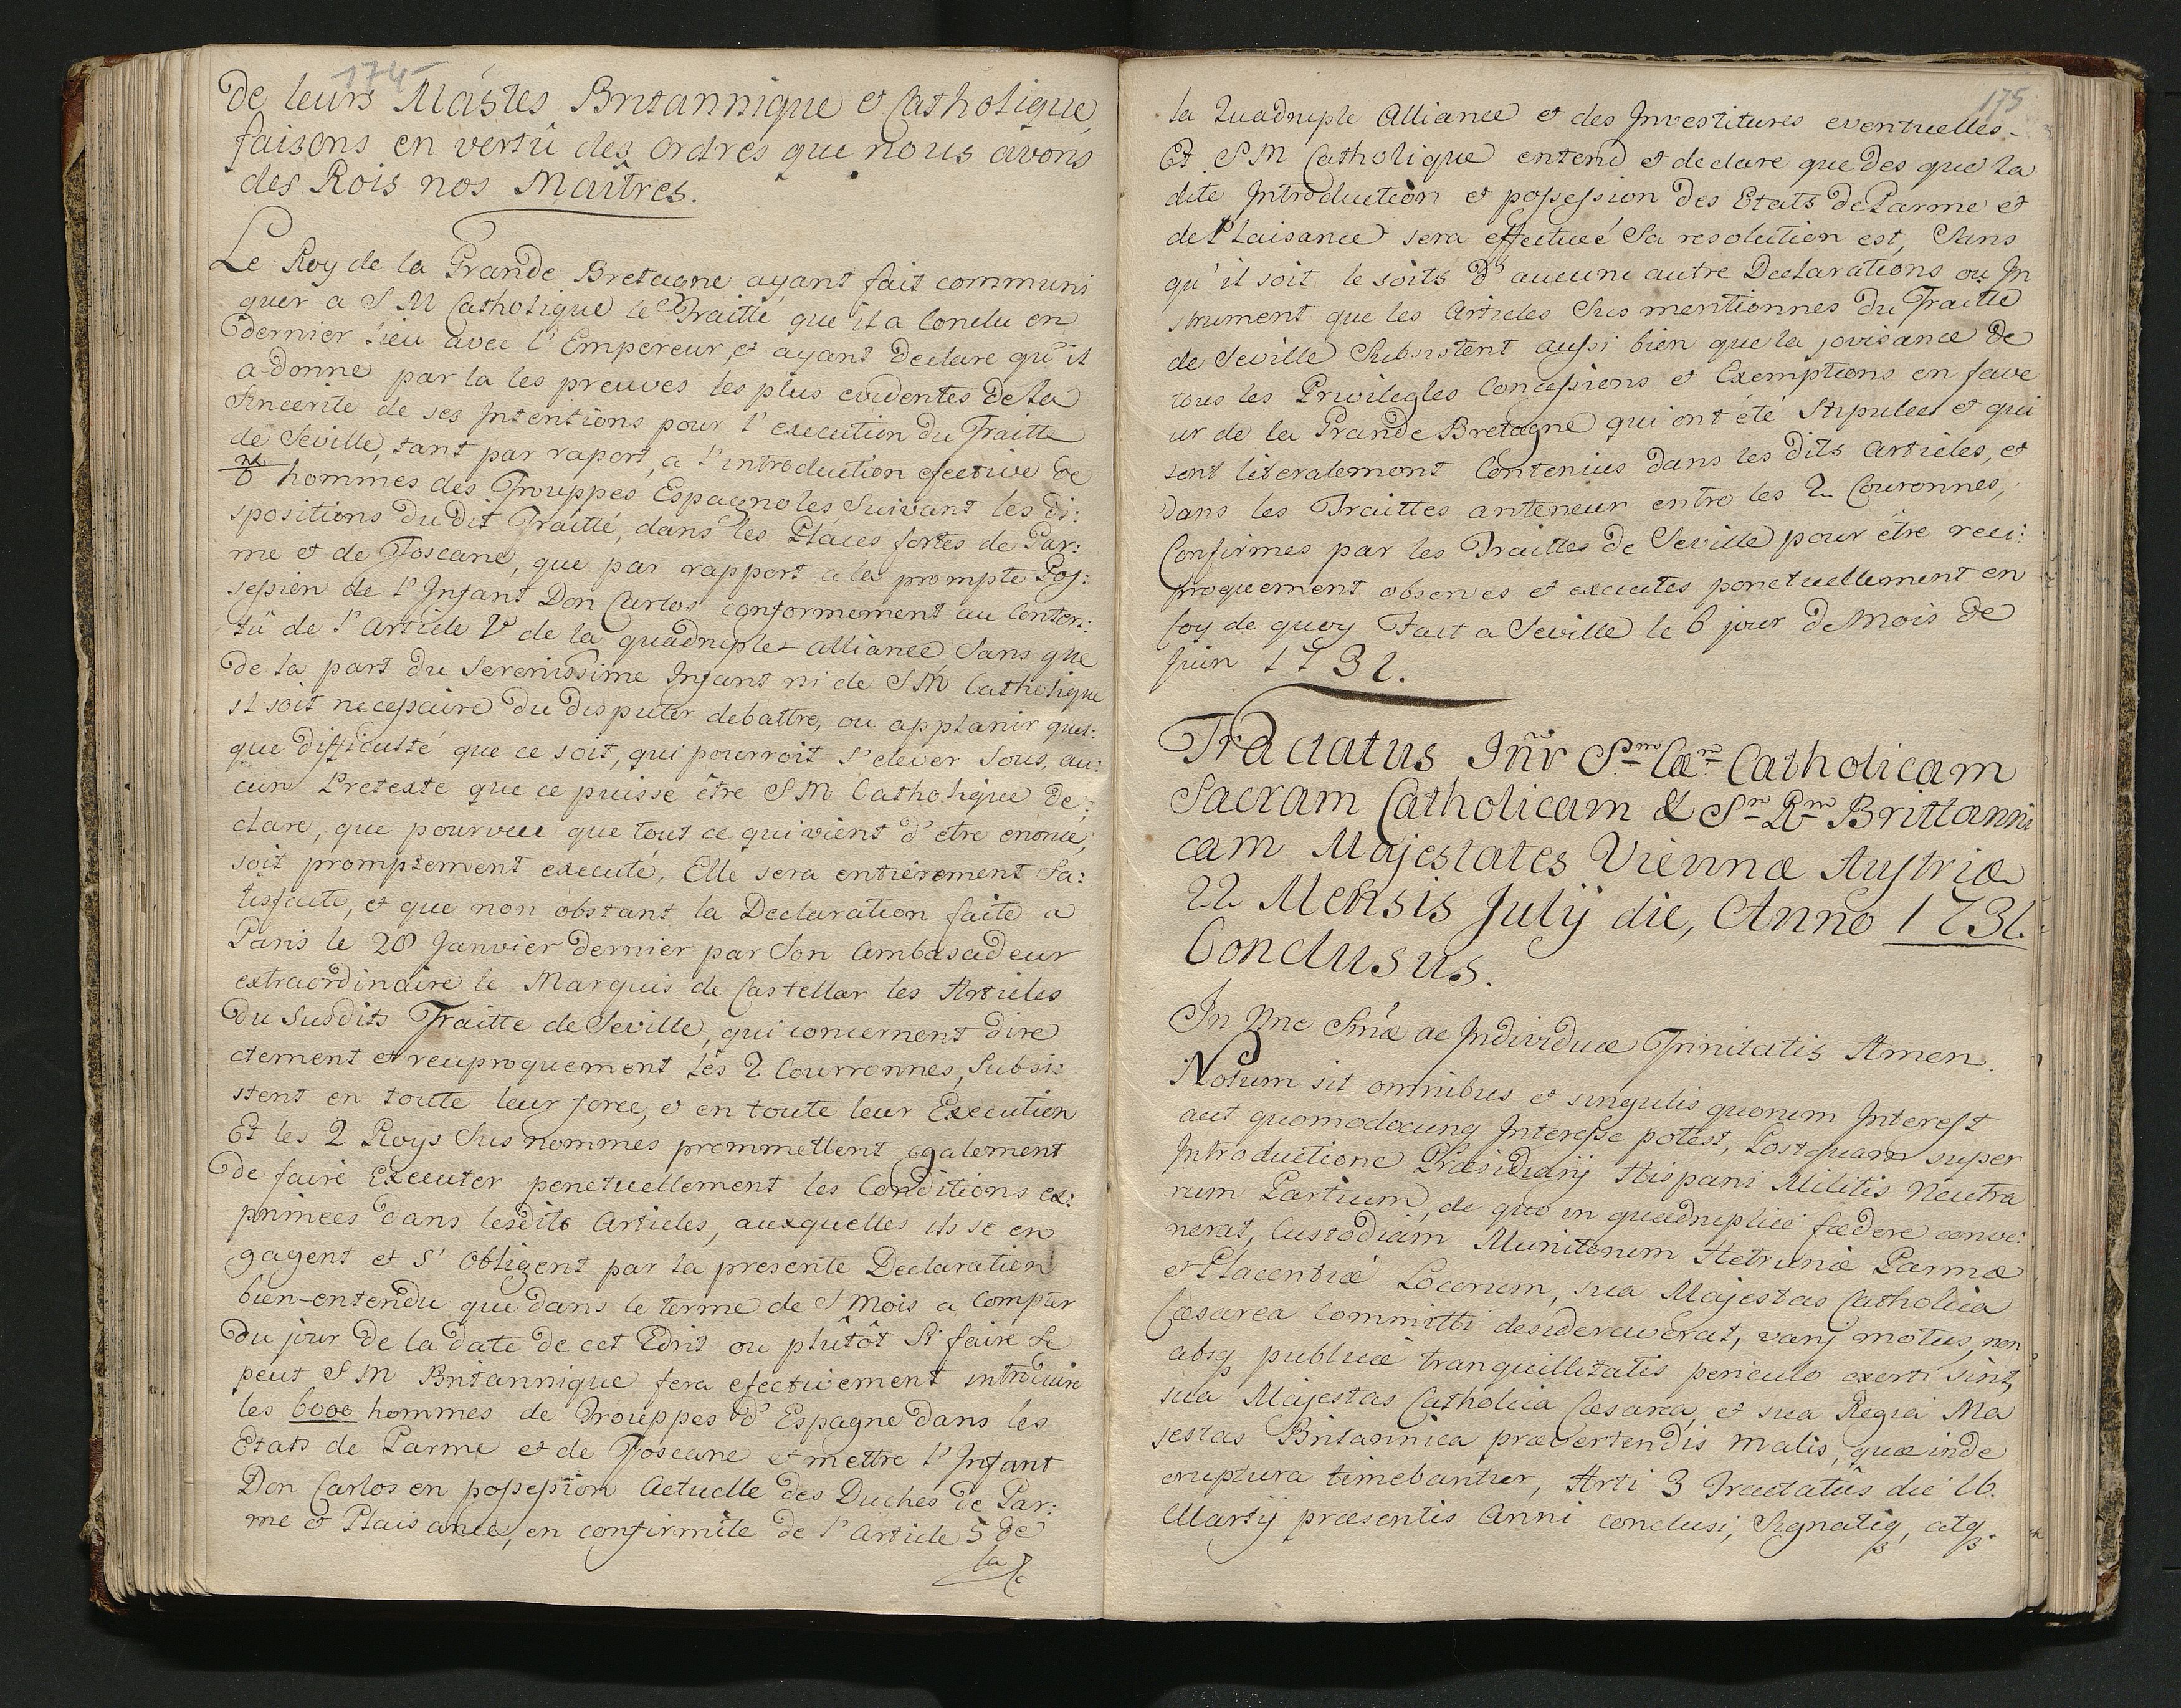 174
de leurs Mástes Britannique et Catholique,
faisons en vertû des ordres que nous avons
des Rois nos Maîtres.
Le Roy de la Grande Bretagne ayant fait communi
quer a S M Catholique le Traitté que il a Conclu en
dernier lieu avec l'Empereur, et ayant declare qu'il
a donne par la les preuves les plus evidentes de la
Sincerite de ses Intentions pour l'execution du Traitte
de Seville, tant par raport, a l'introduction efective de
hommes des Trouppes Espagnoles Suivant les di:
spositions du dit Traitté, dans les Places fortes de Par:
me et de Toscane, que par rapport a la prompte Pos:
session de l'Infant Don Carlos conformement au Conten:
tû de l'Article V de la quadruple alliance Sans que
de la part du Serenissime Infant ni de S M Catholique
il soit necessaire du disputer debattre, ou applanir quel:
que difficulté que ce soit, qui pourroit s'elever Sous, au:
cun Pretexte que ce puisse être S M Catholique de:
clare, que pourveu que tout ce qui vient d'etre enonce,
soit promptement executé, Elle sera entiérement Sa:
tisfaite, et que non obstant la Declaration faite a
Paris le 28 Janvier dernier par Son Ambasadeur
extraordinaire le Marquis de Castellar les Articles
du Susdits Traitte de Seville, qui concernent dire
ctement et reciproquement les 2 Courronnes, Subsi:
stent en toute leur force, et en toute leur Execution
Et les 2 Roys Sus nommes prommettent egalement
de faire Executer penctuellement les Conditions ex:
primees dans lesdits Articles, auxquelles ils se en
gagent et s'Obligent par la presente Declaration
bien-entendu que dans le terme de 5 Mois a Compter
du jour de la date de cet Edrit ou plûtôt Si faire Se
peut S M Britannique fera efectivement introduire
les 6000 hommes de Trouppes d'Espagne dans les
Etats de Parme et de Toscane et mettre l'Infant
Don Carlos en possession Actuelle des Duches de Par:
me et Plaisance, en confirmite de l'Article 5 de
la
175
la Quadruple Alliance et des Investitures eventuelles.
Et S M Catholique entend et declare que des que la
dite Introduction et possession des Etats de Parme et
de Plaisance sera effectueé Sa resolution est, Sans
qu'il soit le soits d'aucune autre Declarations ou In
strument que les Articles Sus mentionnes du Traitte
de Seville Subsistent aussi bien que la jovisance de
tous les Privilegles Concessions et Exemptions en fave
ur de la Grande Bretagne qui ont été Stipulees et qui
sont literalement Contenius dans les dits Articles, et
dans les Traittes anterieur entre les 2 Couronnes,
Confirmes par les Traittes de Seville pour être reci:
proquement observes et executes ponctuellement en
foy de quoy Fait a Seville le 6 jour de Mois de
Juin 1731.
Tractatus Inr Sm Cæm Catholicam
Sacram Catholicam & Sm Rm Brittanni
cam Majestates Viennæ Austriæ
22 Mensis Julij die, Anno 1731.
Conclusus.
In Nne Smæ ac Individuæ Trinitatis Amen.
Notum sit omnibus et singulis quorum Interest
aut quomodocunq Interesse potest, Postquam super
Introductione Præsidiarij Hispani Militis Neutra
rum Partium, de quo in quadruplici fœdere conve:
nerat, Custodiam Munitorum Hetruriæ Parmæ
et Placentiæ Locorum, sua Majestas Catholica
Cæsarea Committi desideraverat, varij motus, non
absq publicæ tranquillitatis periculo exorti sint,
sua Majestas Catholica Cæsarea, et sua Regia Ma
jestas Britannica prævertendis malis, quæ inde
eruptura timebantur, Arti 3 Tractatûs die 16.
Martij præsentis Anni conclusi, Signatiq, atq